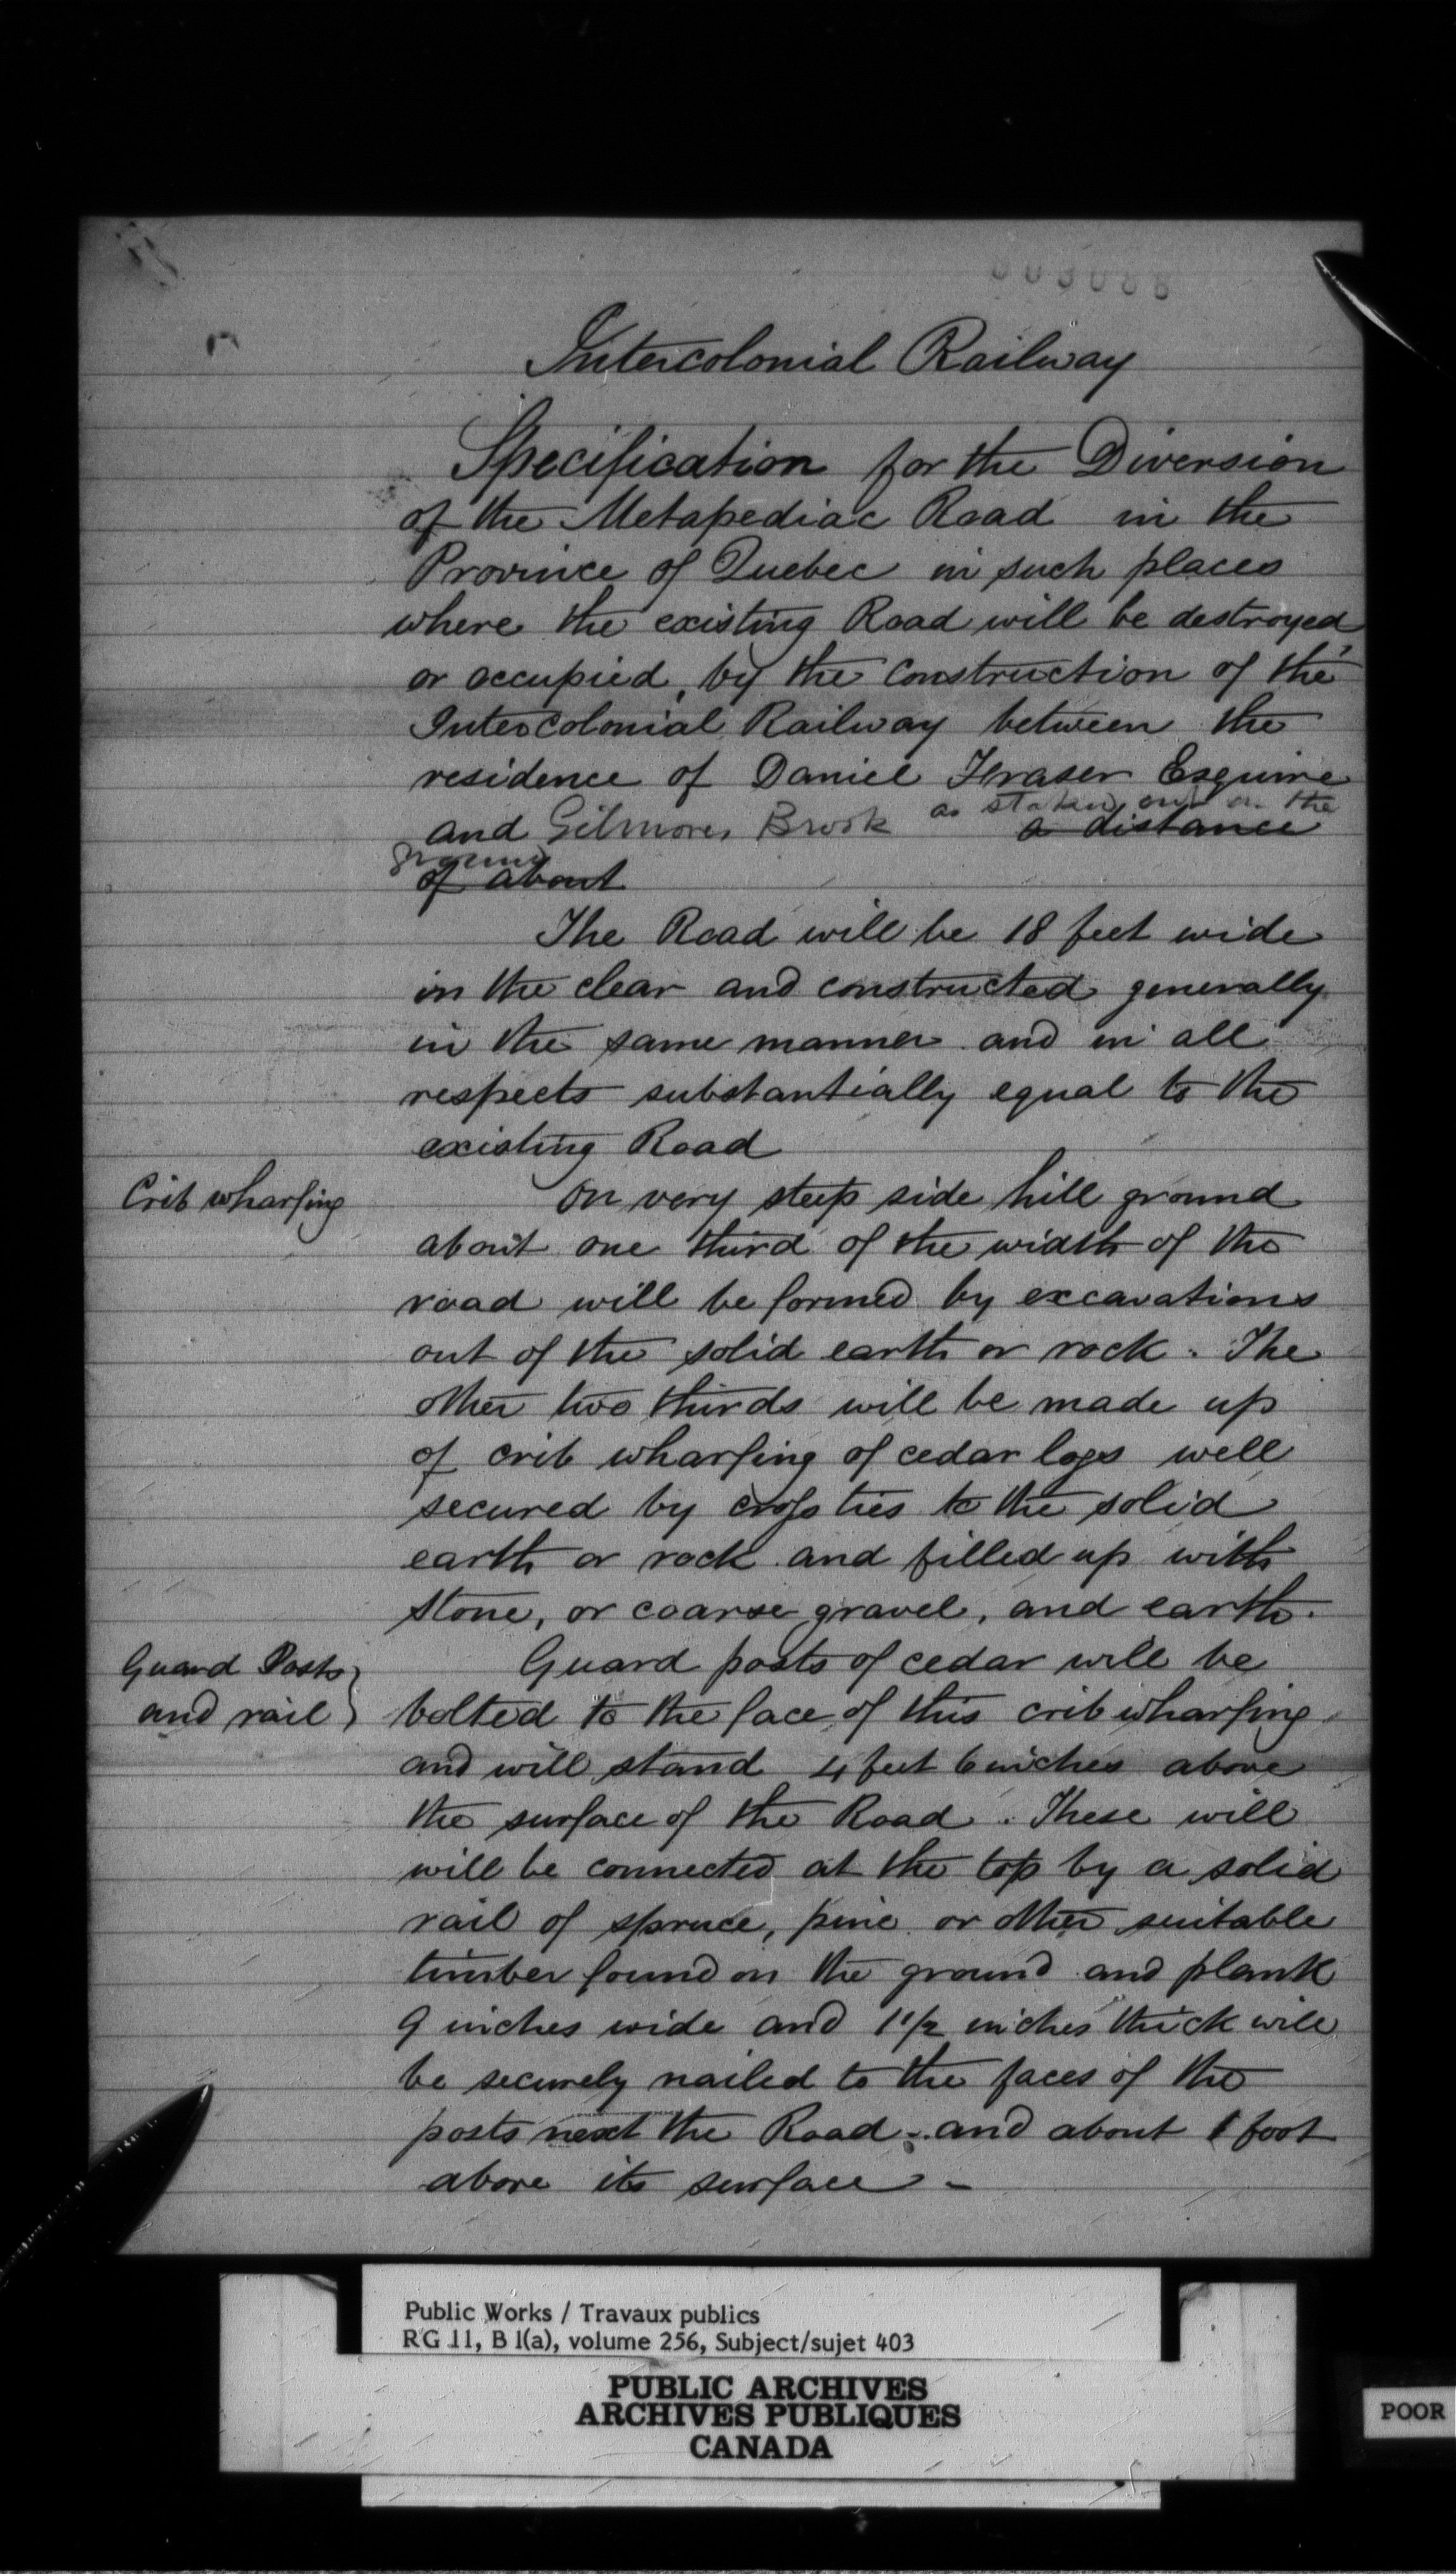 003088
Intercolonial Railway
Specification for the Diversion
of the Metapediac Road in the
Province of Quebec in such places
where the existing Road will be destroyed,
or occupied, by the construction of the
Intercolonial Railway between the
residence of Daniel Fraser Esquire
as staked out on the
and Gilmores Brook a distance
ground
of about
The Road will be 18 feet wide
in the clear and constructed generally
in the same manner and in all
respects substantially equal to the
existing Road
Crib wharfing
On very steep side hill ground
about one third of the width of the
road will be formed by excavations
out of the solid earth or rock. The
other two thirds will be made up
of crib wharfing of cedar logs well
secured by cross ties to the solid
earth or rock and filled up with
stone, or coarse gravel, and earth.
Guard Posts
and rail
Guard posts of cedar will be
bolted to the face of this crib wharfing
and will stand 4 feet 6 inches above
the surface of the Road. These will
will be connected at the top by a solid
rail of spruce, pine or other suitable
timber found on the ground and plank
9 inches wide and 1 1/2 inches thick will
be securely nailed to the faces of the
posts next the Road and about 1 foot
above its surface -
Public Works / Travaux publics
RG 11, B 1(a), volume 256, Subject/sujet 403
PUBLIC ARCHIVES
ARCHIVES PUBLIQUES
CANADA
POOR